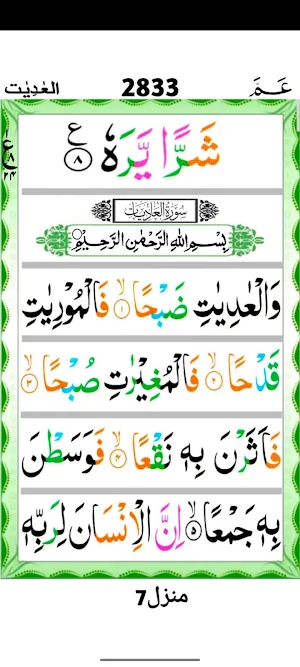 العٰدِيٰت 2833 عَمَّ
شَرًّا يَّرَهٗ ۸ ع
ع ۸ ۲۴
سُورَةُ العَادِيَات
بِسْمِ اللهِ الرَّحْمٰنِ الرَّحِيْمِ
وَالْعٰدِيٰتِ ضَبْحًا ۙ۱ فَالْمُوْرِيٰتِ
قَدْحًا ۙ۲ فَالْمُغِيْرٰتِ صُبْحًا ۙ۳
فَاَثَرْنَ بِهٖ نَقْعًا ۙ۴ فَوَسَطْنَ
بِهٖ جَمْعًا ۙ۵ اِنَّ الْاِنْسَانَ لِرَبِّهٖ
منزل7